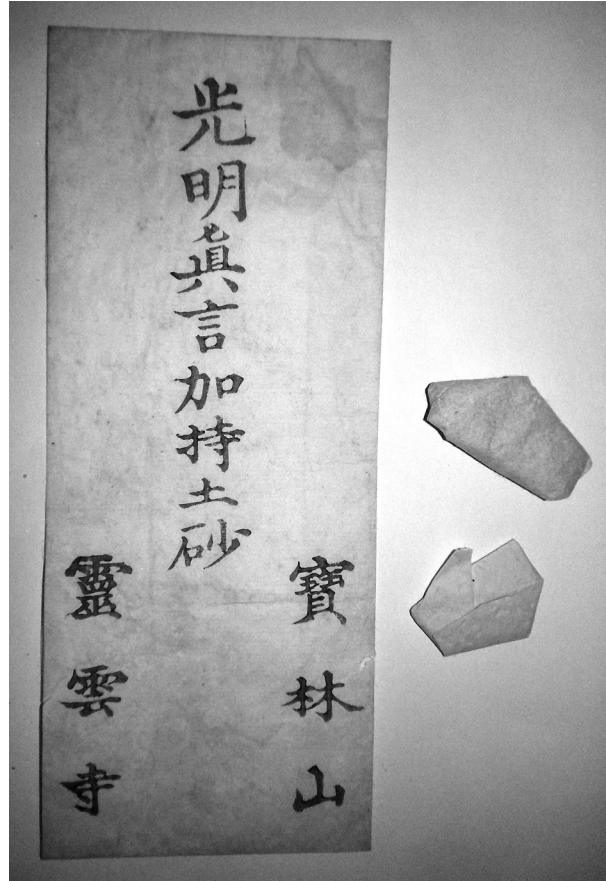 光明眞言加持土砂
寶林山
靈雲寺